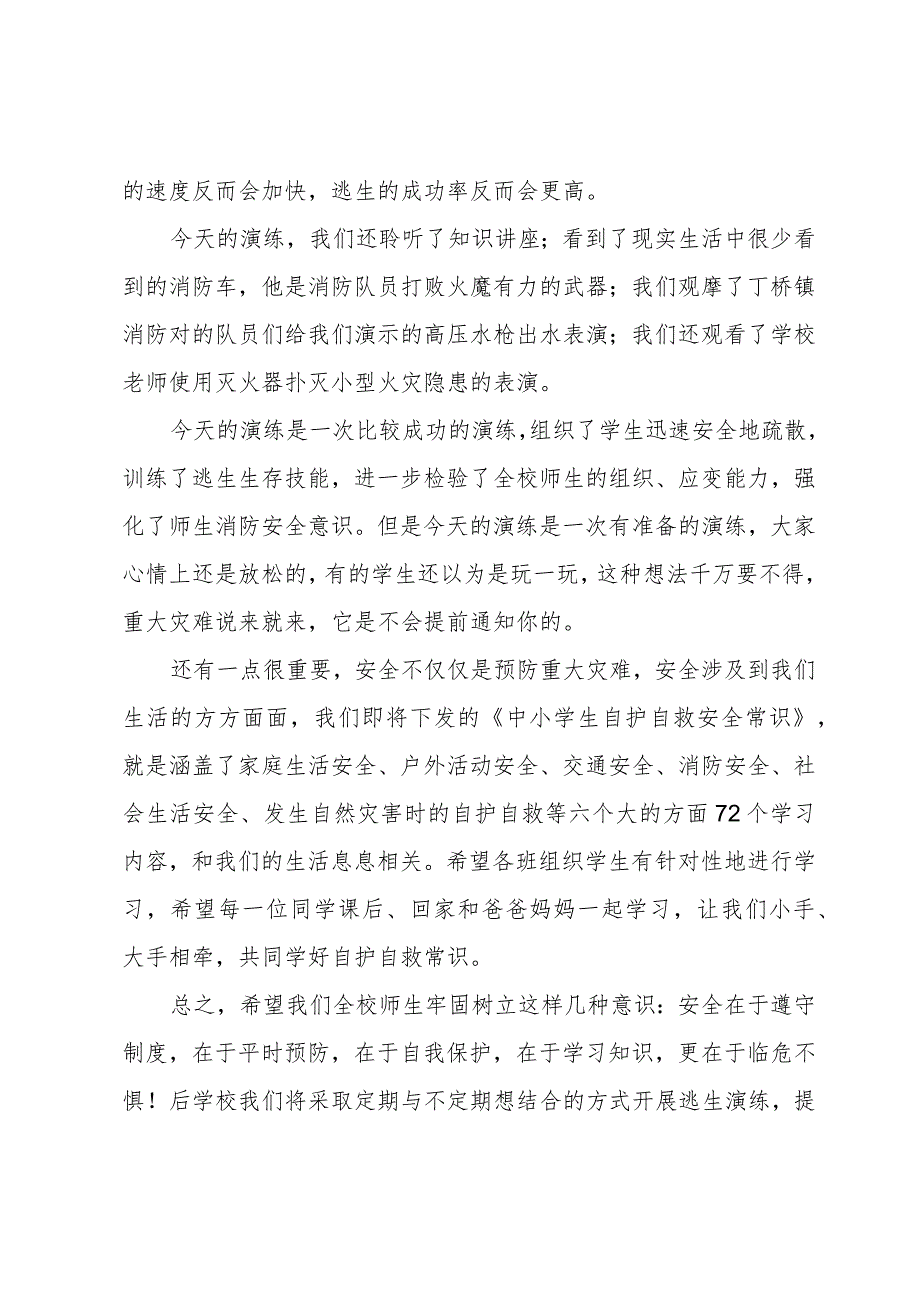 的速度反而会加快，逃生的成功率反而会更高。
今天的演练，我们还聆听了知识讲座；看到了现实生活中很少看
到的消防车，他是消防队员打败火魔有力的武器；我们观摩了丁桥镇
消防对的队员们给我们演示的高压水枪出水表演；我们还观看了学校
老师使用灭火器扑灭小型火灾隐患的表演。
今天的演练是一次比较成功的演练，组织了学生迅速安全地疏散，
训练了逃生生存技能，进一步检验了全校师生的组织、应变能力，强
化了师生消防安全意识。但是今天的演练是一次有准备的演练，大家
心情上还是放松的，有的学生还以为是玩一玩，这种想法千万要不得，
重大灾难说来就来，它是不会提前通知你的。
还有一点很重要，安全不仅仅是预防重大灾难，安全涉及到我们
生活的方方面面，我们即将下发的《中小学生自护自救安全常识》，
就是涵盖了家庭生活安全、户外活动安全、交通安全、消防安全、社
会生活安全、发生自然灾害时的自护自救等六个大的方面 72 个学习
内容，和我们的生活息息相关。希望各班组织学生有针对性地进行学
习，希望每一位同学课后、回家和爸爸妈妈一起学习，让我们小手、
大手相牵，共同学好自护自救常识。
总之，希望我们全校师生牢固树立这样几种意识：安全在于遵守
制度，在于平时预防，在于自我保护，在于学习知识，更在于临危不
惧！后学校我们将采取定期与不定期想结合的方式开展逃生演练，提